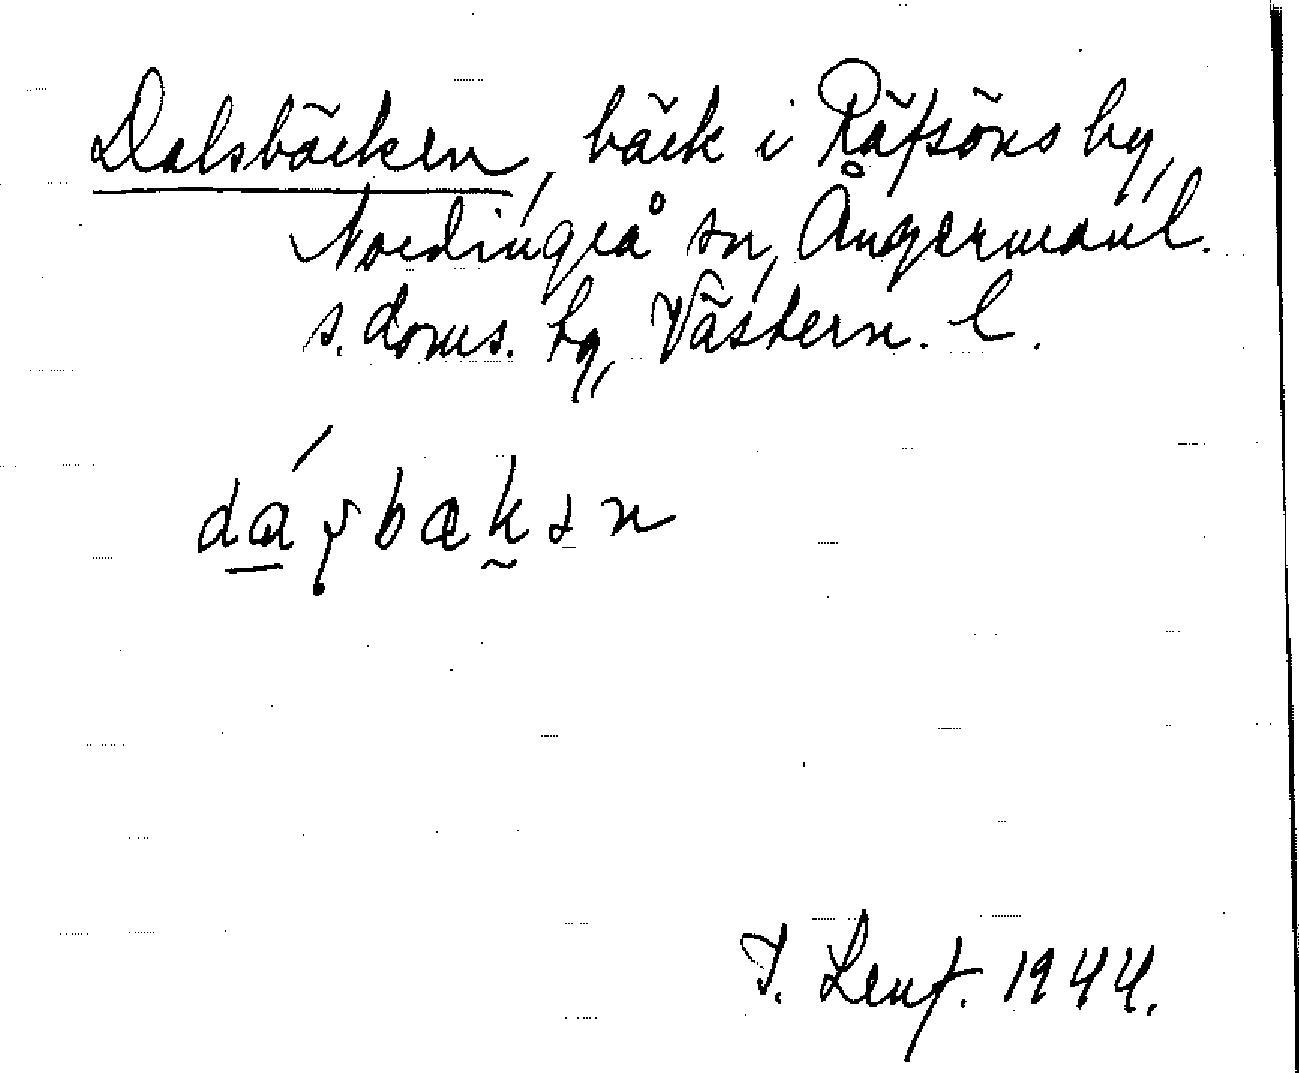 Dalsbäcken, bäck i Räfsöns by,
Nordingrå sn, Ångermanl.
s. doms. hg, Västern. l.
I. Lenf. 1944.